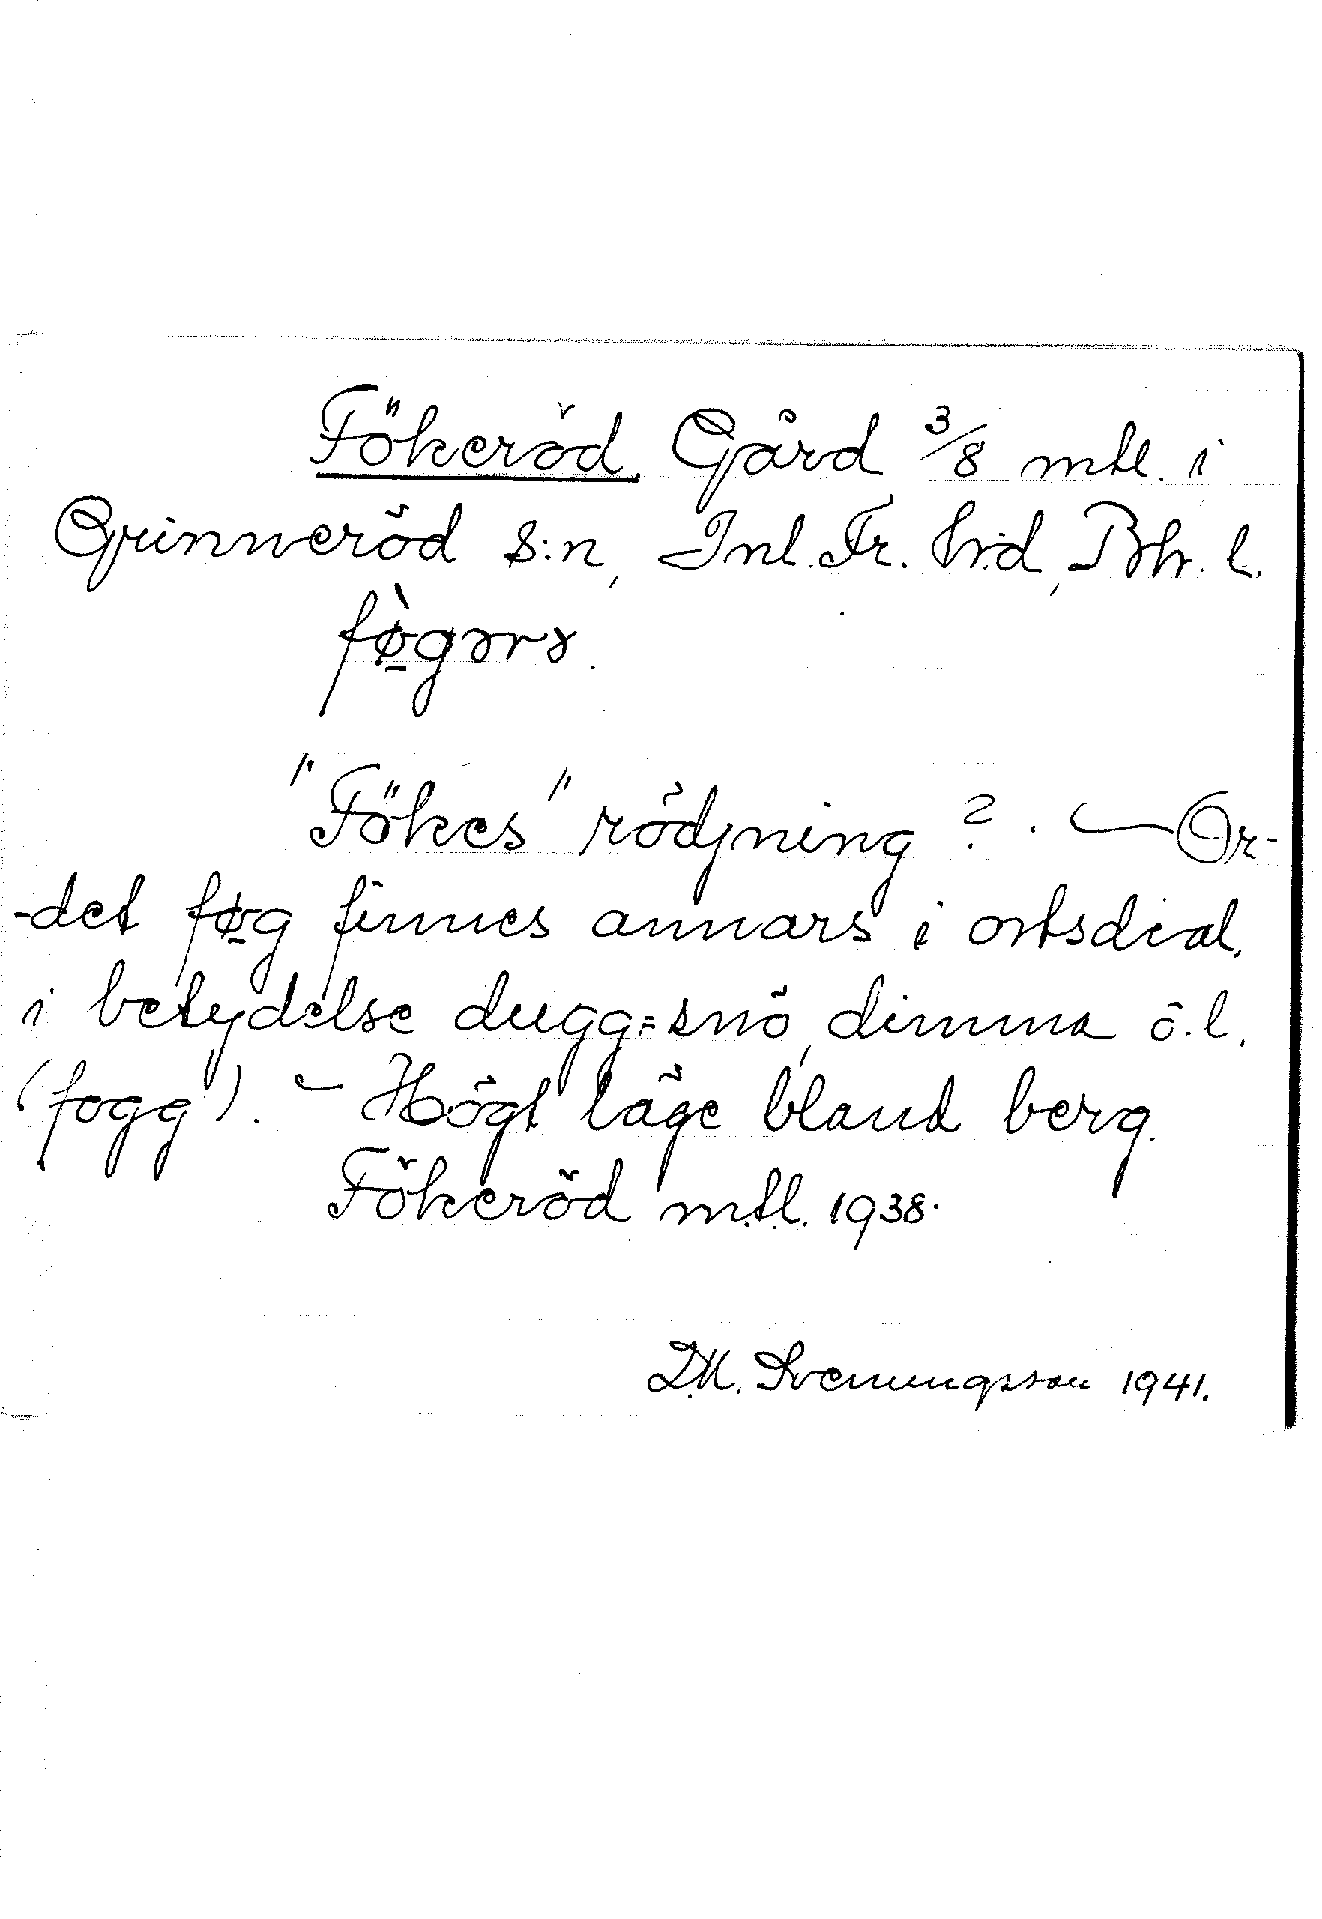 Fökeröd. Gård 3/8 mtl. i
Grinneröd s:n, Inl. Fr. hrd, Bh. l.
fø̀gərə.
"Fökes" rödjning?. — Or-
-det føg finnes annars i ortsdial.
i betydelse dugg=snö, dimma o.l.
(fogg). – Högt läge bland berg.
Fökeröd mtl. 1938.
D.M. Svenungsson 1941.